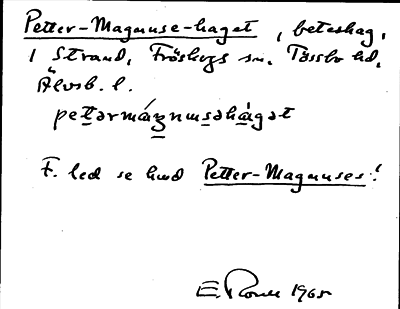 Petter-Magnuse-haget, beteshag,
i Strand, Fröskogs sn. Tössbo hd,
Älvsb. l.
petərmáŋnusəhágət
F. led se hud Petter-Magnuses!
E. 1965